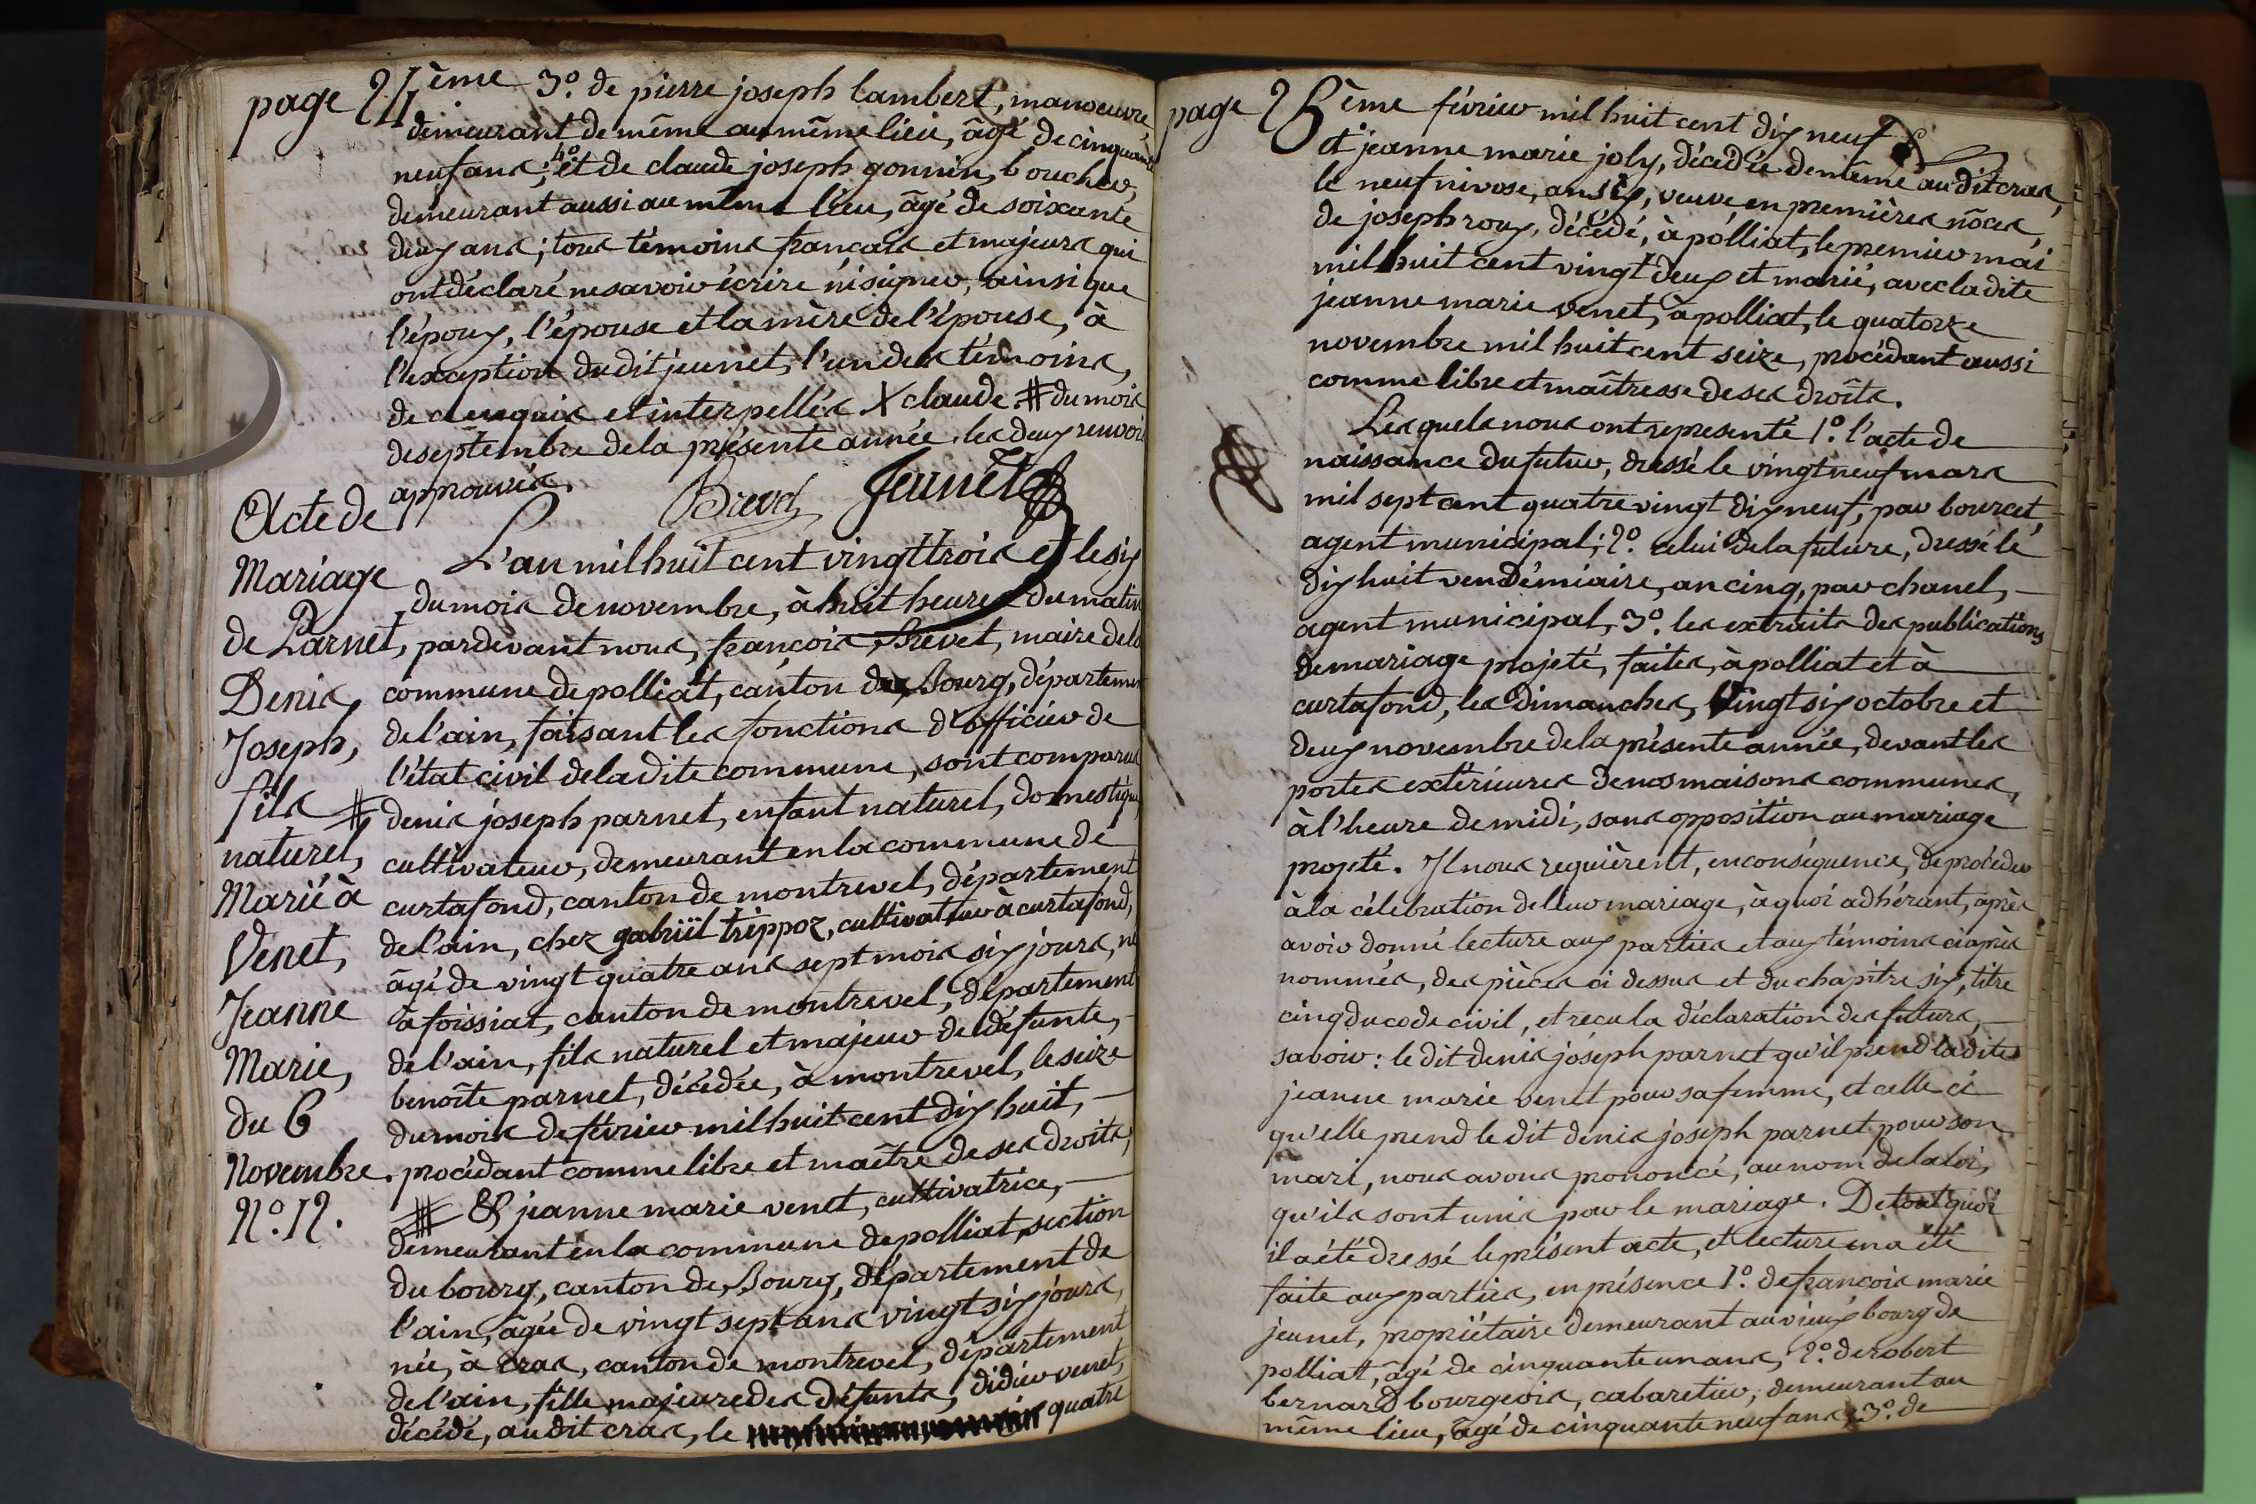 page 24ème 3º. de pierre joseph lambert, manoeuvre,
demeurant de même au même lieu, âgé de cinquante
neuf ans, 4º. et de claude joseph gonnin, boucher,
demeurant aussi au même lieu, âgé de soixante
deux ans; tous témoins français et majeurs qui
ont déclaré ne savoir écrire ni signer, ainsi que
l'époux, l'épouse et la mère de l'épouse, à
l'exception du dit jeunet, l'un des témoins,
de ce enquis et interpellés X claude. # du mois
de septembre de la présente année. les deux renvois
approuvés.
Brevet Jeunet
Acte de
Mariage
de Parnet,
Denis
Joseph,
fils
naturel,
Marié à
Venet,
Jeanne
Marie,
du 6
Novembre.
Nº. 12.
L'an mil huit cent vingt trois et le six
du mois de novembre, à huit heures du matin
pardevant nous, françois Brevet, maire de la
commune de polliat, canton de Bourg, département
de l'ain, faisant les fonctions d'officier de
l'état civil de la dite commune, sont comparus
# denis joseph parnet, enfant naturel, domestique
cultivateur, demeurant en la commune de
curtafond, canton de montrevel, département
de l'ain, chez gabriël trippoz, cultivateur à curtafond,
âgé de vingt quatre ans sept mois six jours, né
à foissiat, canton de montrevel, département
de l'ain, fils naturel et majeur de défunte,
benoîte parnet, décédée, à montrevel, le seize
du mois de février mil huit cent dix huit,
procédant comme libre et maître de ses droits,
# Et jeanne marie venet, cultivatrice,
demeurant en la commune de polliat, section
du bourg, canton de Bourg, département de
l'ain, âgée de vingt sept ans vingt six jours,
née, à cras, canton de montrevel, département
de l'ain, fille majeure des défunts, didier venet,
décédé, au dit cras, le quatre
page 25ème février mil huit cent dix neuf
et jeanne marie joly, décédée de même au dit cras,
le neuf nivose, an six, veuve en premières nôces,
de joseph roux, décédé, à polliat, le premier mai
mil huit cent vingt deux et marié, avec la dite
jeanne marie venet, à polliat, le quatorze
novembre mil huit cent seize, procédant aussi
comme libre et maîtresse de ses droits.
Les quels nous ont representé 1º. l'acte de
naissance du futur, dressé le vingt neuf mars
mil sept cent quatre vingt dix neuf, par bourcet,
agent municipal; 2º. celui de la future, dressé le
dix huit vendémiaire, an cinq, par chanel,
agent municipal, 3º. les extraits des publications
de mariage projeté, faites, à polliat et à
curtafond, les dimanches, vingt six octobre et
deux novembre de la présente année, devant les
portes extérieures de nos maisons communes,
à l'heure de midi, sans opposition au mariage
projeté. Il nous requièrent, en conséquence, de procéder
à la célébration de leur mariage, à quoi adhérant, après
avoir donné lecture aux parties et aux témoins ci après
nommés, des pièces ci dessus et du chapitre six, titre
cinq du code civil, et reçu la déclaration des futurs,
savoir: le dit denis joseph parnet qu'il prend la dite
jeanne marie venet pour sa femme, et celle ci
qu'elle prend le dit denis joseph parnet pour son
mari, nous avons prononcé, au nom de la loi,
qu'ils sont unis par le mariage. De tout quoi
il a été dressé le présent acte, et lecture en a été
faite aux parties, en présence 1º. de françois marie
jeunet, propriétaire demeurant au vieux bourg de
polliat, âgé de cinquante un ans, 2º. de robert
bernard bourgeois, cabaretier, demeurant au
même lieu, âgé de cinquante neuf ans, 3º. de